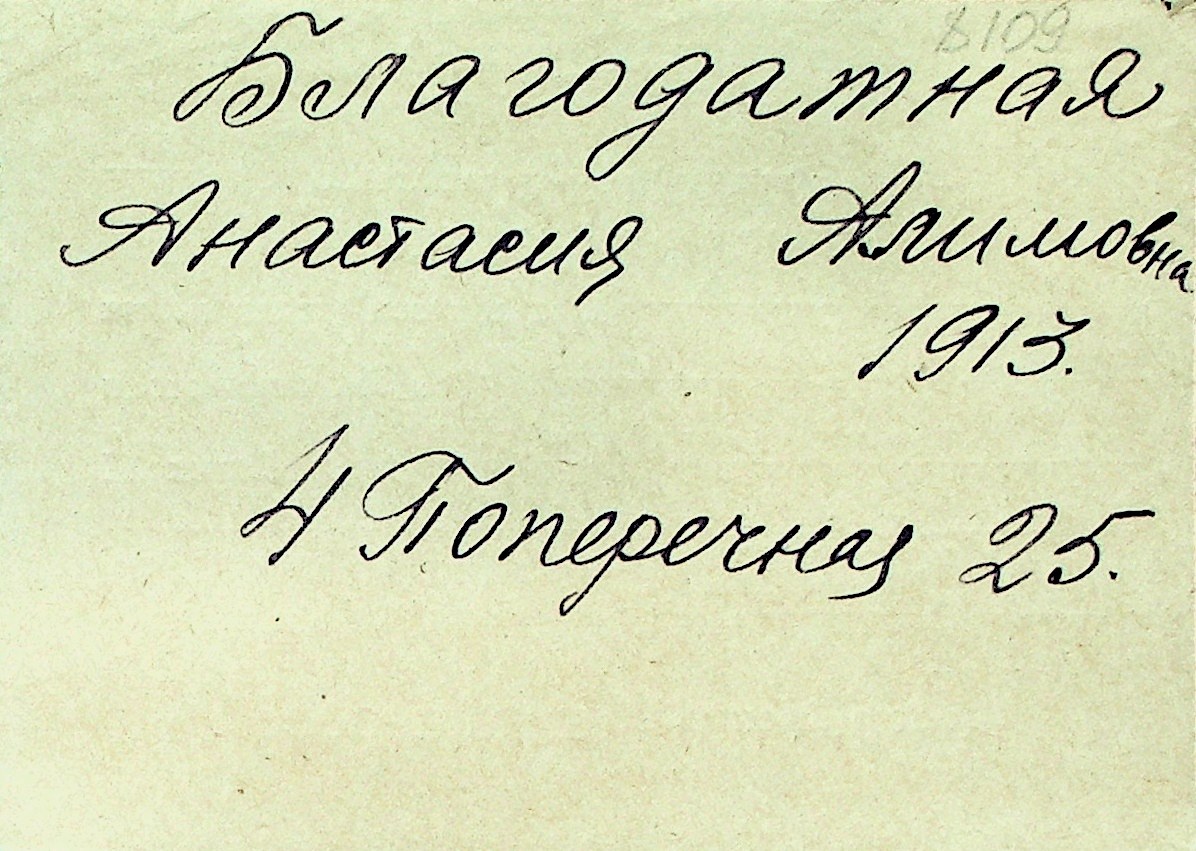 8109
Благодатная
Анастасия Алимовна
1913.
4 Поперечная 25.